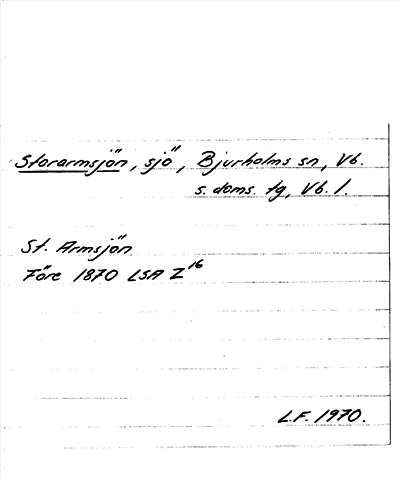 Storarmsjön, sjö, Bjurholms sn, Vb.
s. doms. tg, Vb. l.
St. Armsjön
Före 1870 LSA Z16
L.F. 1970.